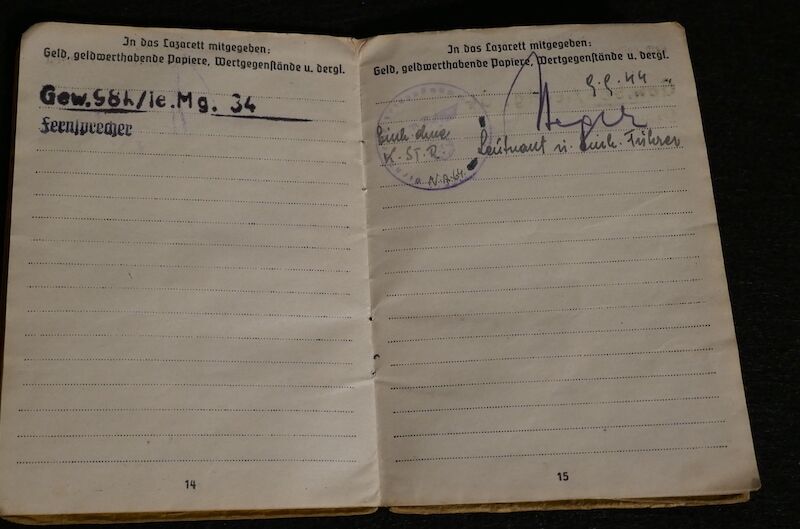 In das Lazarett mitgegeben:
Geld, geldwerthabende Papiere, Wertgegenstände u. dergl.
Gew.98k/le.Mg. 34
Fernsprecher
14
In das Lazarett mitgegeben:
Geld, geldwerthabende Papiere, Wertgegenstände u. dergl.
9.9.44
Leutnant u. Einh. Führer
Einh. ohne
K. St. N.
15